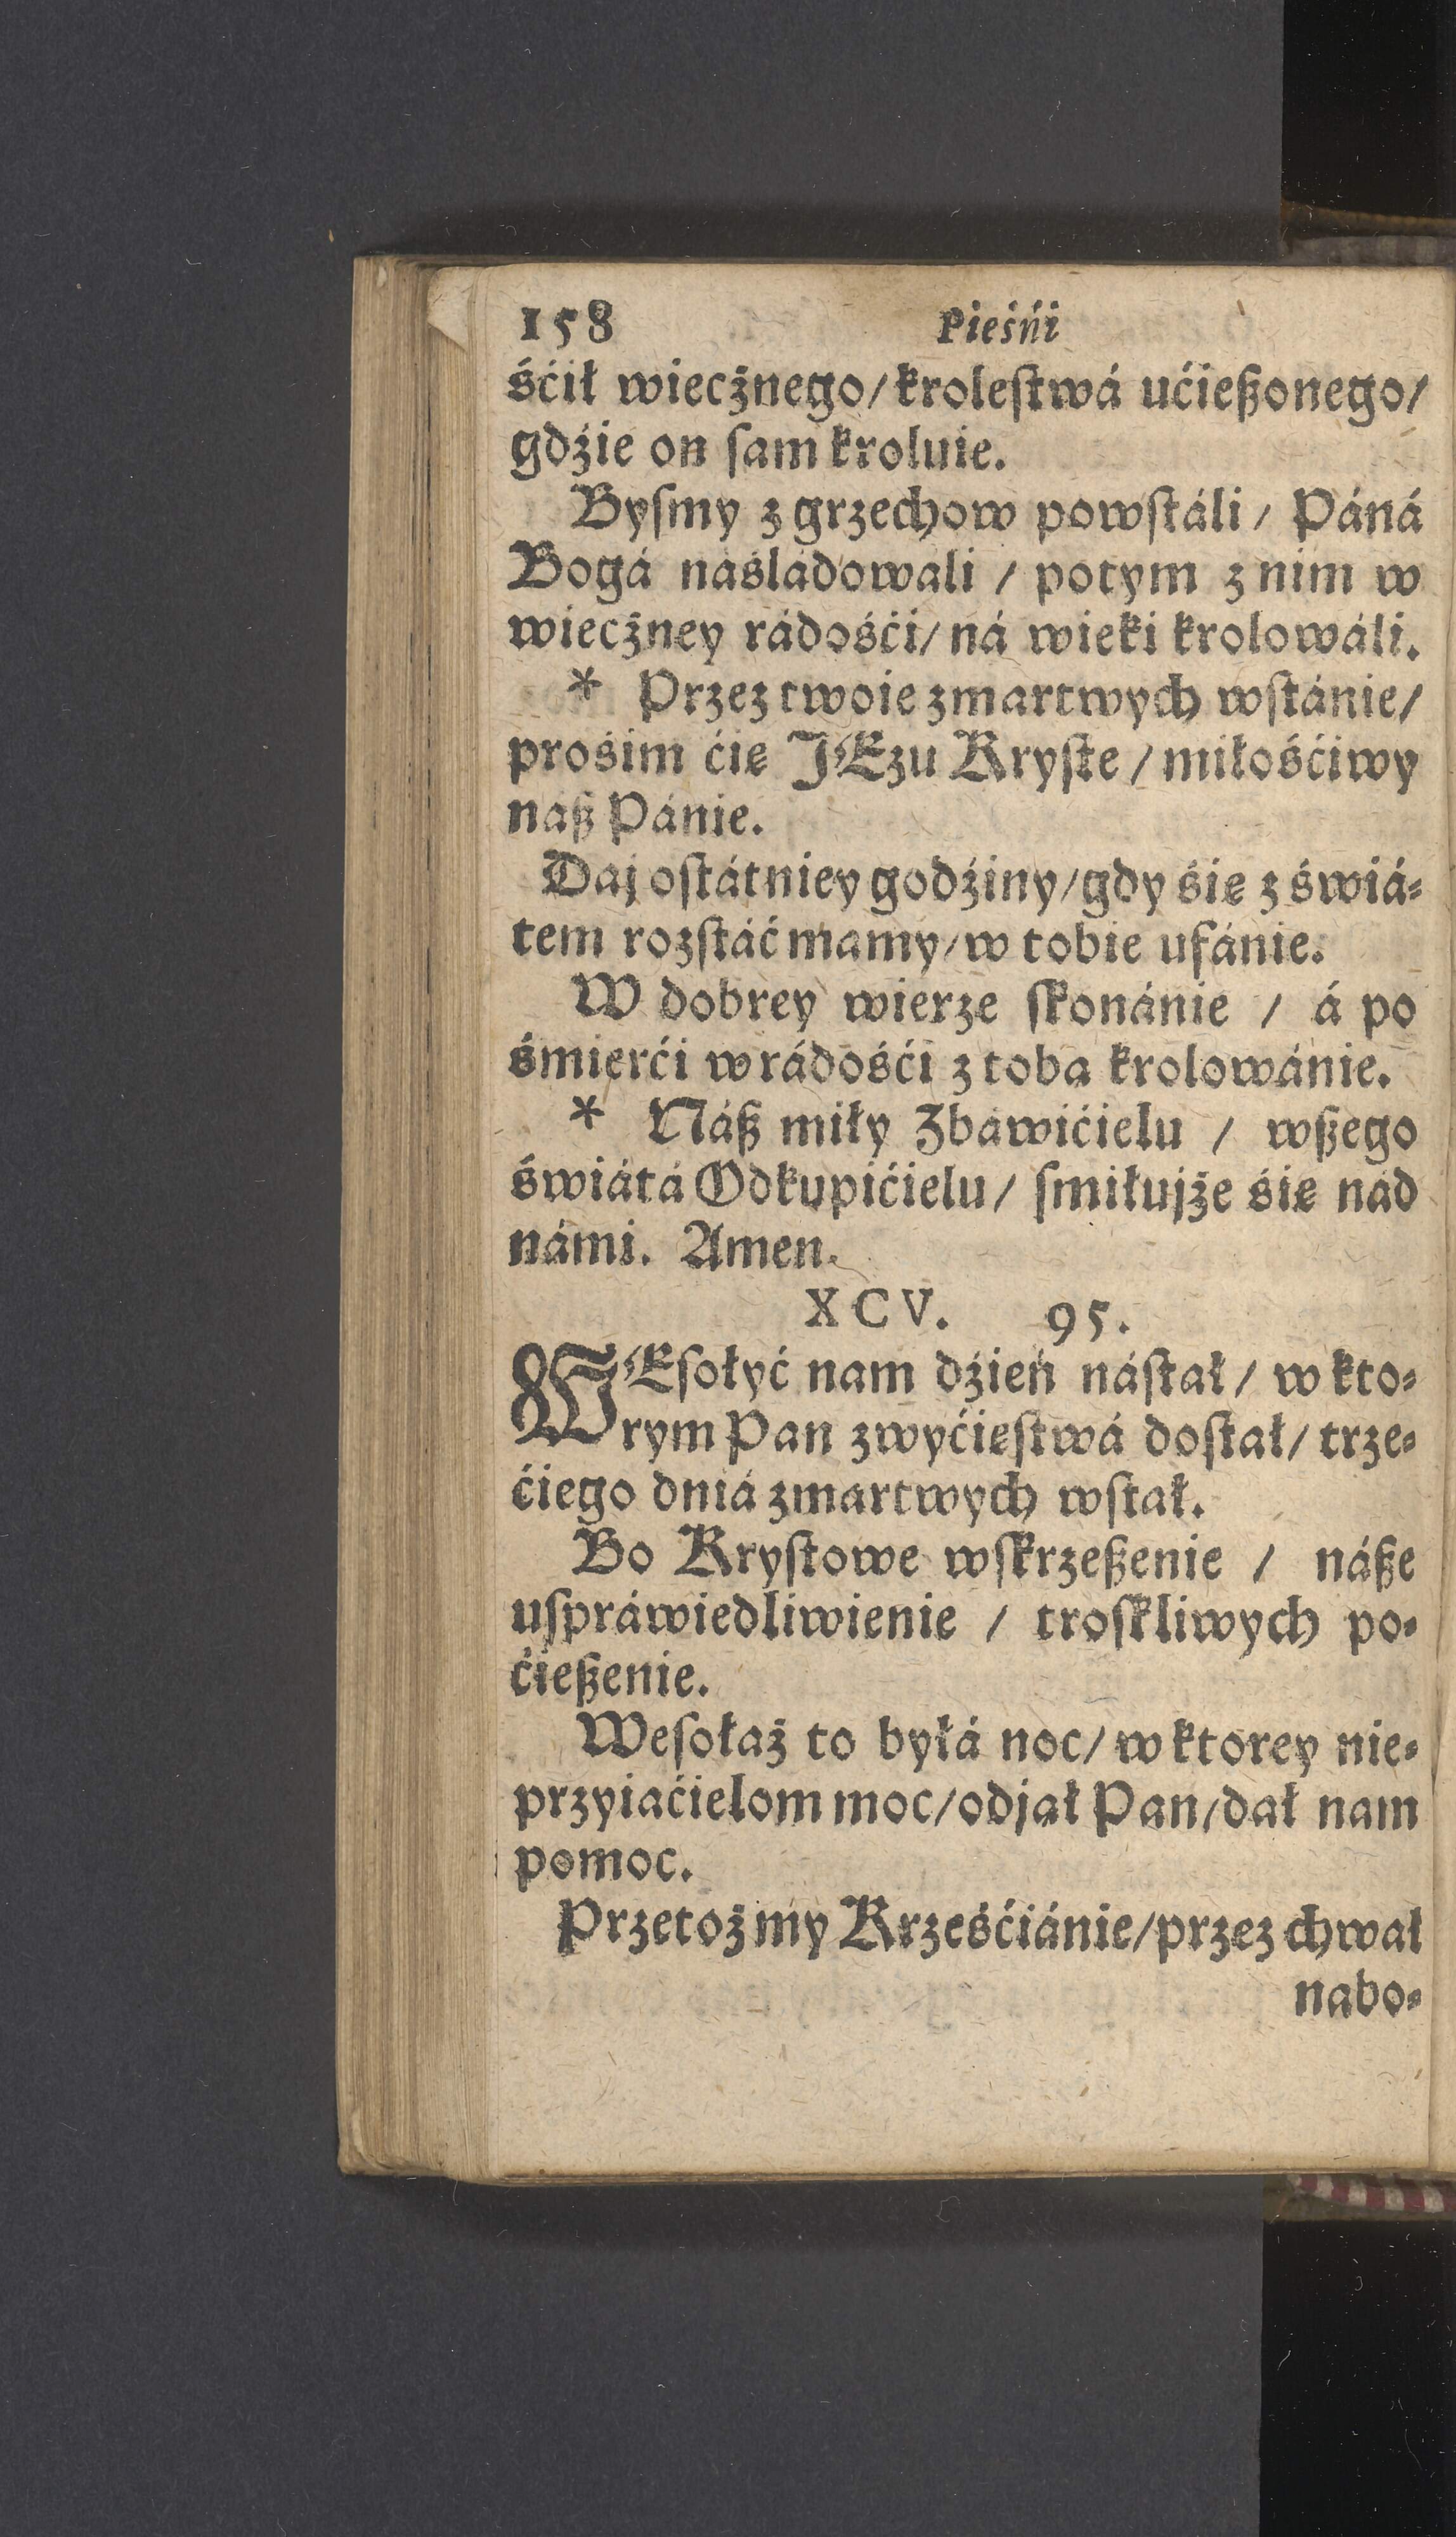 158 Pieśńi
śćił wiecżnego/ kroleſtwá ućießonego/
gdźie on ſam kroluie.
Byſmy z grzechow powſtáli / Páná
Bogá náśládowáli / potym z nim w
wiecżney rádośći/ ná wieki krolowáli.
* Przez twoie zmartwych wſtánie/
prośim ćię JEzu Kryſte / miłośćiwy
náß Pánie.
Daj oſtátniey godźiny/gdy śię z świá⸗
tem rozſtáć mamy/w tobie ufánie.
W dobrey wierze ſkonánie / á po
śmierći w rádośći z tobą krolowánie.
* Náß miły Zbáwićielu / wßego
świátá Odkupićielu/ ſmiłujże śię nád
námi. Amen.
XCV. 95.
WEſołyć nam dźień náſtał/ w kto⸗
rym Pan zwyćięſtwá doſtał/ trze⸗
ćiego dniá zmartwych wſtał.
Bo Kryſtowe wſkrzeßenie / náße
uſpráwiedliwienie / troſkliwych po⸗
ćießenie.
Weſołaż to byłá noc/ w ktorey nie⸗
przyiaćielom moc/odjął Pan/dał nam
pomoc.
Przetoż my Krześćiánie/przez chwał
nabo⸗